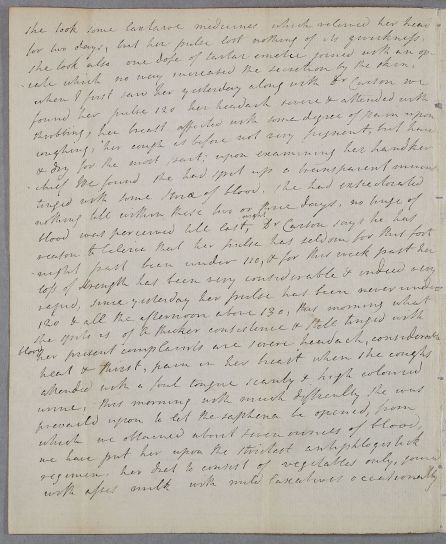 she took some laxative medicines which relieved her head
for two days, but her pulse lost nothing of its quickness.
she took also one dose of tartar emetic joined with an op-
iate which no way increased the secretion by the skin,
when I first saw her yesterday along with Dr Carson we
found her pulse 120 her headach severe & attended with
throbbing, her breast affected with some degree of pain upon
coughing, her cough is before not very frequent, but hard
& dry for the most part; upon examining her handker
chief We found she had spit up a transparent mucus
tinged with some streaks of blood. she had expectorated
nothing till within these two or three days, no tinge of
blood was perceived till last night, Dr Carson says he has
reason to believe that her pulse has seldom for this fort
-night past been under 110, & for this week past her
loss of strength has been very considerable & indeed very
rapid, since yesterday her pulse has been never under
120 & all the afternoon above 130, this morning what
she spits is of a thicker consistence & still tinged with
blood her present complaints are severe headach, considerable
heat & thirst, pain in her breast when she coughs
attended with a foul tongue scanty & high coloured
urine; this morning with much difficulty she was
prevailed upon to let the saphena be opened, from
which we obtained about seven ounces of blood,
we have put her upon the strictest antiphlogistick
regimen, her diet to consist of vegetables only, joined
with asses milk with mild laxatives occasionally